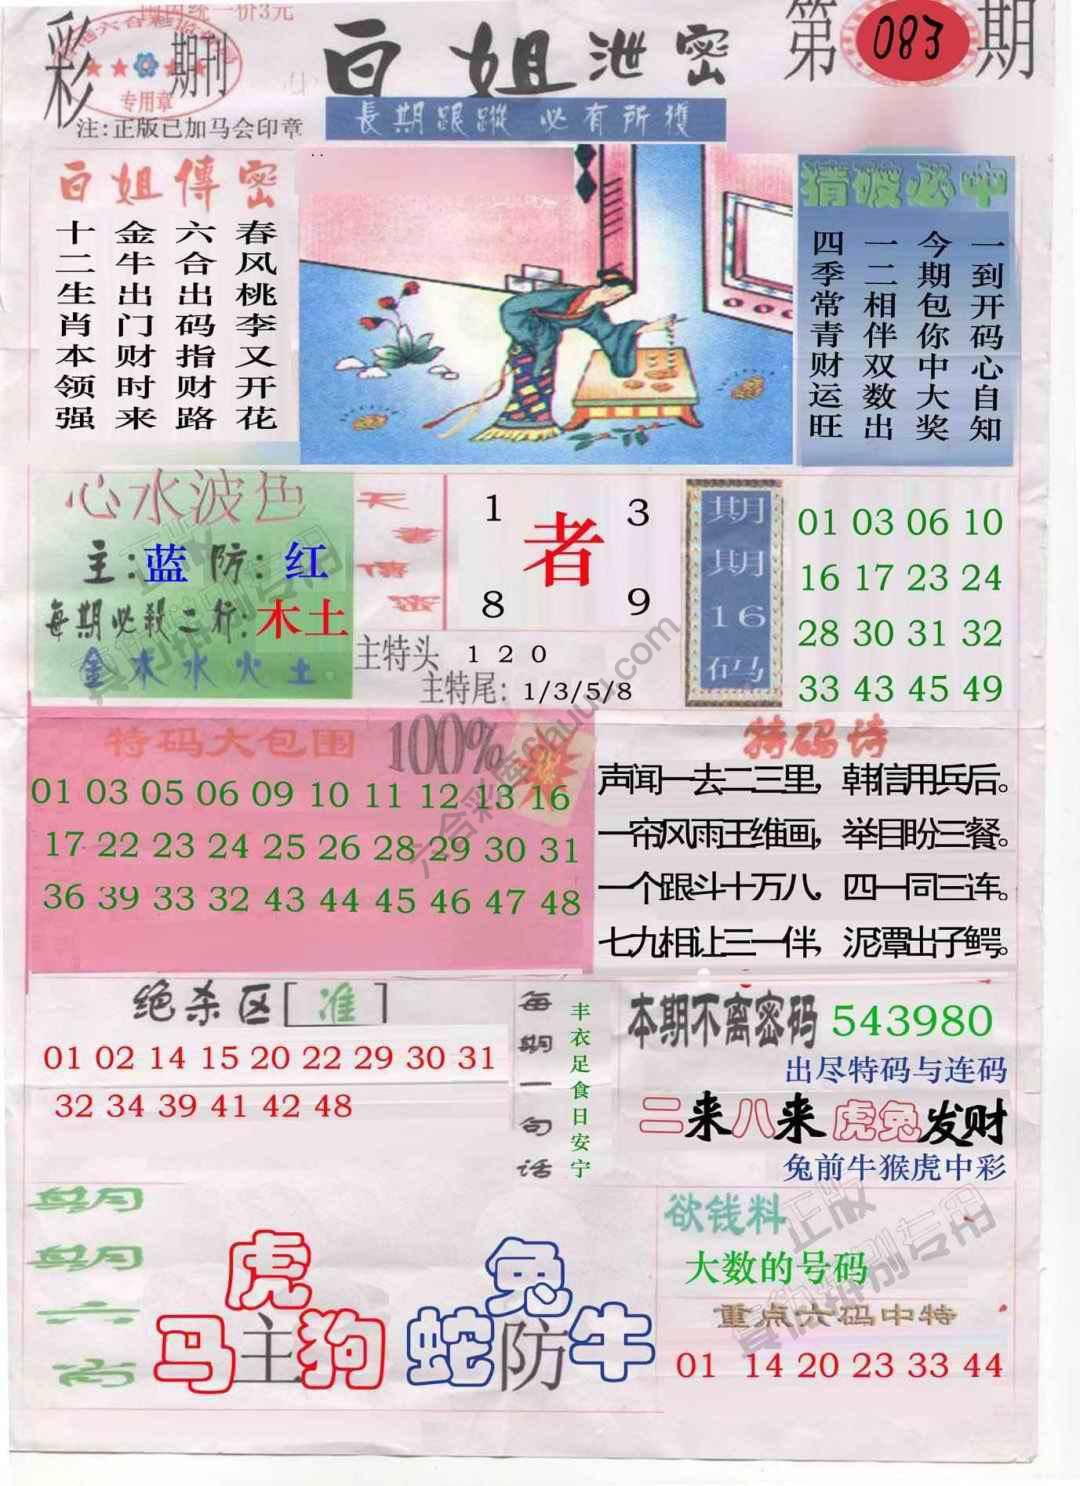 周围统一价3元
彩
期刊
专用章
白姐泄密
第083期
注:正版已加马会印章
長期跟蹤 必有所獲
白姐傳密
春风桃李又开花
六合出码指财路
金牛出门财时来
十二生肖本领强
猜破必中
一到开码心自知
今期包你中大奖
一二相伴双数出
四季常青财运旺
心水波色
主:蓝 防:红
每期必殺二行:木土
金木水火土
天者傳密
1 3
者
8 9
主特头 1 2 0
主特尾: 1/3/5/8
期期16码
01 03 06 10
16 17 23 24
28 30 31 32
33 43 45 49
特码大包围
100%
01 03 05 06 09 10 11 12 13 16
17 22 23 24 25 26 28 29 30 31
36 39 33 32 43 44 45 46 47 48
特码诗
声闻一去二三里,韩信用兵后。
一帘风雨王维画,举目盼三餐。
一个跟斗十万八,四一同三连。
七九相让三一伴,泥潭出子鳄。
绝杀区[准]
01 02 14 15 20 22 29 30 31
32 34 39 41 42 48
每期一句话
丰衣足食日安宁
本期不离密码 543980
出尽特码与连码
二来八来 虎兔发财
兔前牛猴虎中彩
期
期
六
肖
虎
马主狗
兔
蛇防牛
欲钱料
大数的号码
重点六码中特
01 14 20 23 33 44